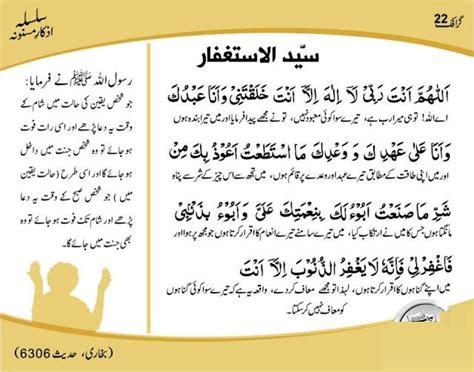 گرافک 22
سلسلہ
اذکار مسنونہ
سیّد الاستغفار
اَللّٰهُمَّ اَنْتَ رَبِّیْ لَا اِلٰهَ اِلَّا اَنْتَ خَلَقْتَنِیْ وَاَنَا عَبْدُكَ
اے اللہ! تو ہی میرا رب ہے، تیرے سوا کوئی معبود نہیں، تو نے مجھے پیدا فرمایا اور میں تیرا بندہ ہوں
وَاَنَا عَلٰی عَهْدِكَ وَ وَعْدِكَ مَا اسْتَطَعْتُ اَعُوْذُ بِكَ مِنْ
میں اپنی طاقت کے مطابق تیرے عہد اور وعدے پر قائم ہوں، میں تجھ سے اس چیز کے شر سے پناہ
شَرِّ مَا صَنَعْتُ اَبُوْءُ لَكَ بِنِعْمَتِكَ عَلَیَّ وَاَبُوْءُ بِذَنْبِیْ
مانگتا ہوں جس کا میں نے ارتکاب کیا، میں تیرے سامنے تیرے انعام کا اقرار کرتا ہوں جو مجھ پر ہوا اور
فَاغْفِرْلِیْ فَاِنَّهٗ لَا یَغْفِرُ الذُّنُوْبَ اِلَّا اَنْتَ
میں اپنے گناہوں کا اقرار کرتا ہوں، لہذا تو مجھے معاف کردے، واقعہ یہ ہے کہ تیرے سوا کوئی گناہوں
کو معاف نہیں کرسکتا۔
رسول اللہ ﷺ نے فرمایا:
جو شخص یقین کی حالت میں شام کے
وقت یہ دعا پڑھے اور اسی رات فوت
ہوجائے تو وہ شخص جنت میں داخل
ہوجائے گا اور اسی طرح (حالت یقین
میں) جو شخص صبح کے وقت یہ دعا
پڑھے اور شام تک فوت ہوجائے وہ
بھی جنت میں جائے گا۔
(بخاری، حدیث 6306)